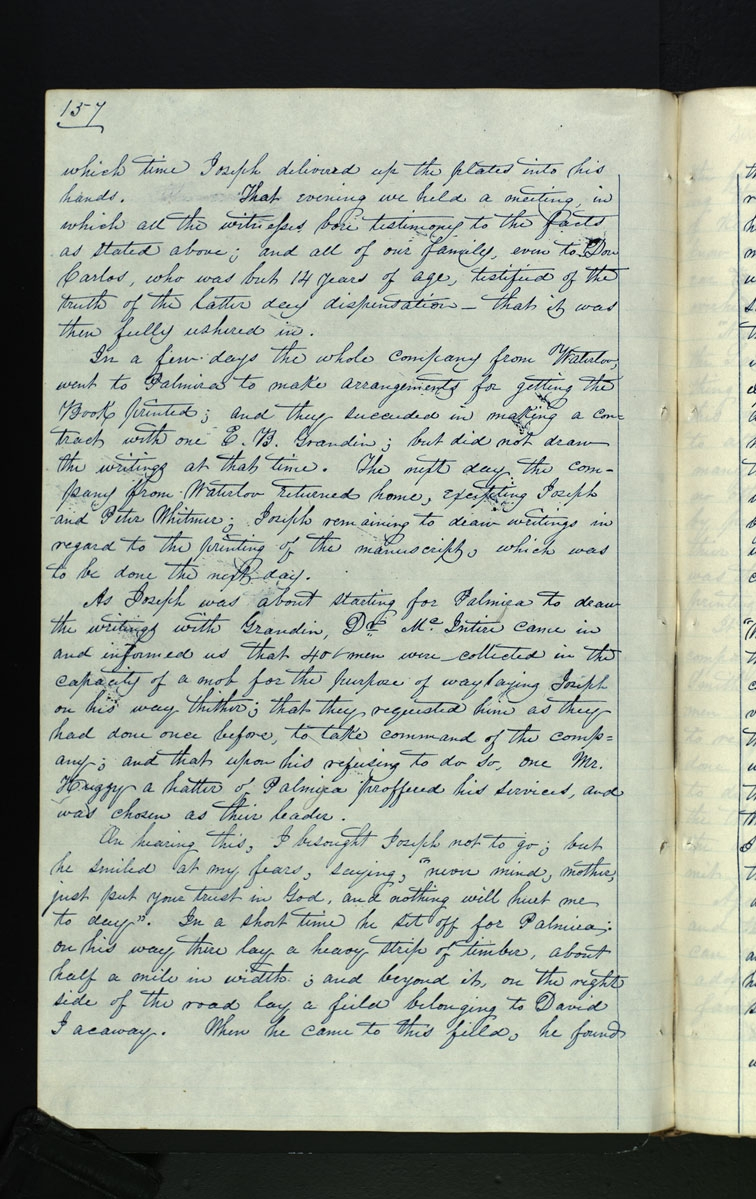 157
which time Joseph delivered up the plates into his
hands. That evening we held a meeting, in
which all the witnesses bore testimony to the facts
as stated above; and all of our family, even to Don
Carlos, who was but 14 years of age, testified of the
truth of the latter day dispensation — that it was
then fully ushered in.
In a few days the whole company from Waterloo,
went to Palmira to make arrangements for getting the
Book printed; and they succeeded in making a con=
tract with one E. B. Grandin; but did not draw
the writings at that time. The next day the com-
pany from Waterloo returned home, excepting Joseph
and Peter Whitmer; Joseph remaining to draw writings in
regard to the printing of the manuscript, which was
to be done the next day.
As Joseph was about starting for Palmira to draw
the writings with Grandin, Dr. Mc Intire came in
and informed us that 40 men were collected in the
capacity of a mob for the purpose of waylaying Joseph
on his way thither; that they requested him as they
had done once before, to take command of the comp=
any; and that upon his refusing to do so, one Mr.
Huggy a hatter of Palmira proffered his services, and
was chosen as their leader.
On hearing this, I besought Joseph not to go; but
he smiled at my fears, saying, "never mind, mother,
just put your trust in God, and nothing will hurt me
to day". In a short time he set off for Palmira;
on his way there lay a heavy strip of timber, about
half a mile in width; and beyond it, on the right
side of the road lay a field belonging to David
Jacaway. When he came to this field, he found